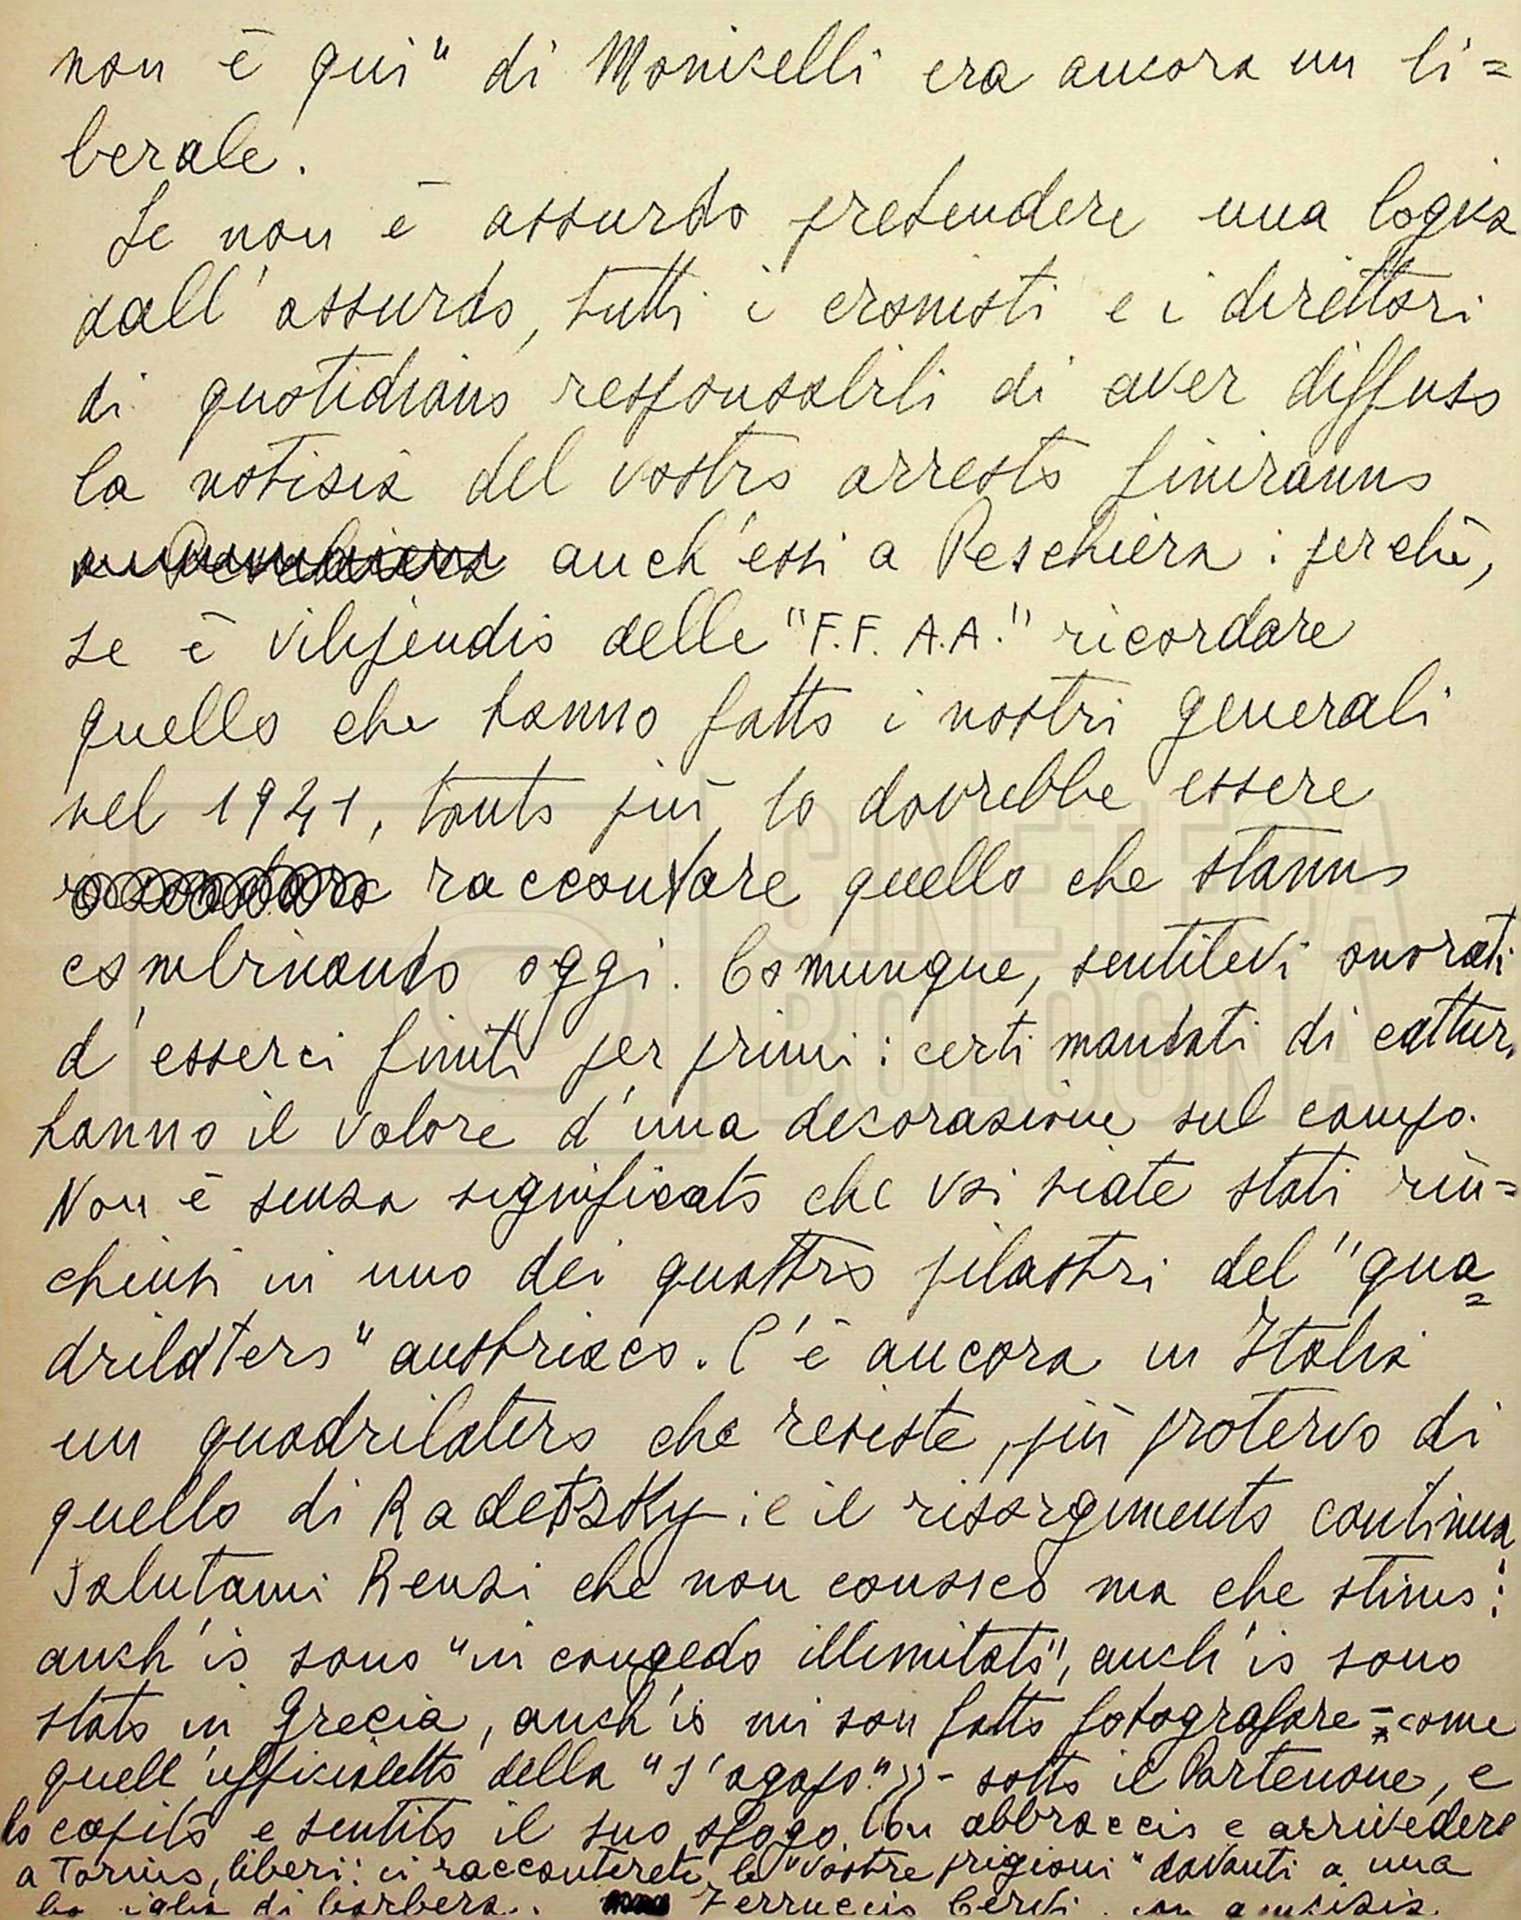 non è qui" di Monicelli era ancora un li=
berale.
Se non è assurdo pretendere una logica
dall'assurdo, tutti i cronisti e i direttori
di quotidiano responsabili di aver diffuso
la notizia del vostro arresto finiranno
anch'essi a Peschiera: perchè,
se è vilipendio delle "F.F. A.A." ricordare
quello che hanno fatto i nostri generali
nel 1941, tanto più lo dovrebbe essere
raccontare quello che stanno
combinando oggi. Comunque, sentitevi onorati
d'esserci finiti per primi: certi mandati di cattur
hanno il valore d'una decorazione sul campo.
Non è senza significato che voi siate stati rin=
chiusi in uno dei quattro pilastri del "qua=
drilatero" austriaco. C'è ancora in Italia
un quadrilatero che resiste, più protervo di
quello di Radetszky: e il risorgimento continua
Salutami Renzi che non conosco ma che stimo:
anch'io sono "in congedo illimitato", anch'io sono
stato in Grecia, anch'io mi son fatto fotografare - come
quell'ufficialetto della "S'agapo" - sotto il Partenone, e
ho capito e sentito il suo sfogo. Un abbraccio e arrivederci
a Torino, liberi: ci racconterete le "vostre prigioni" davanti a una
di barbera. Ferruccio